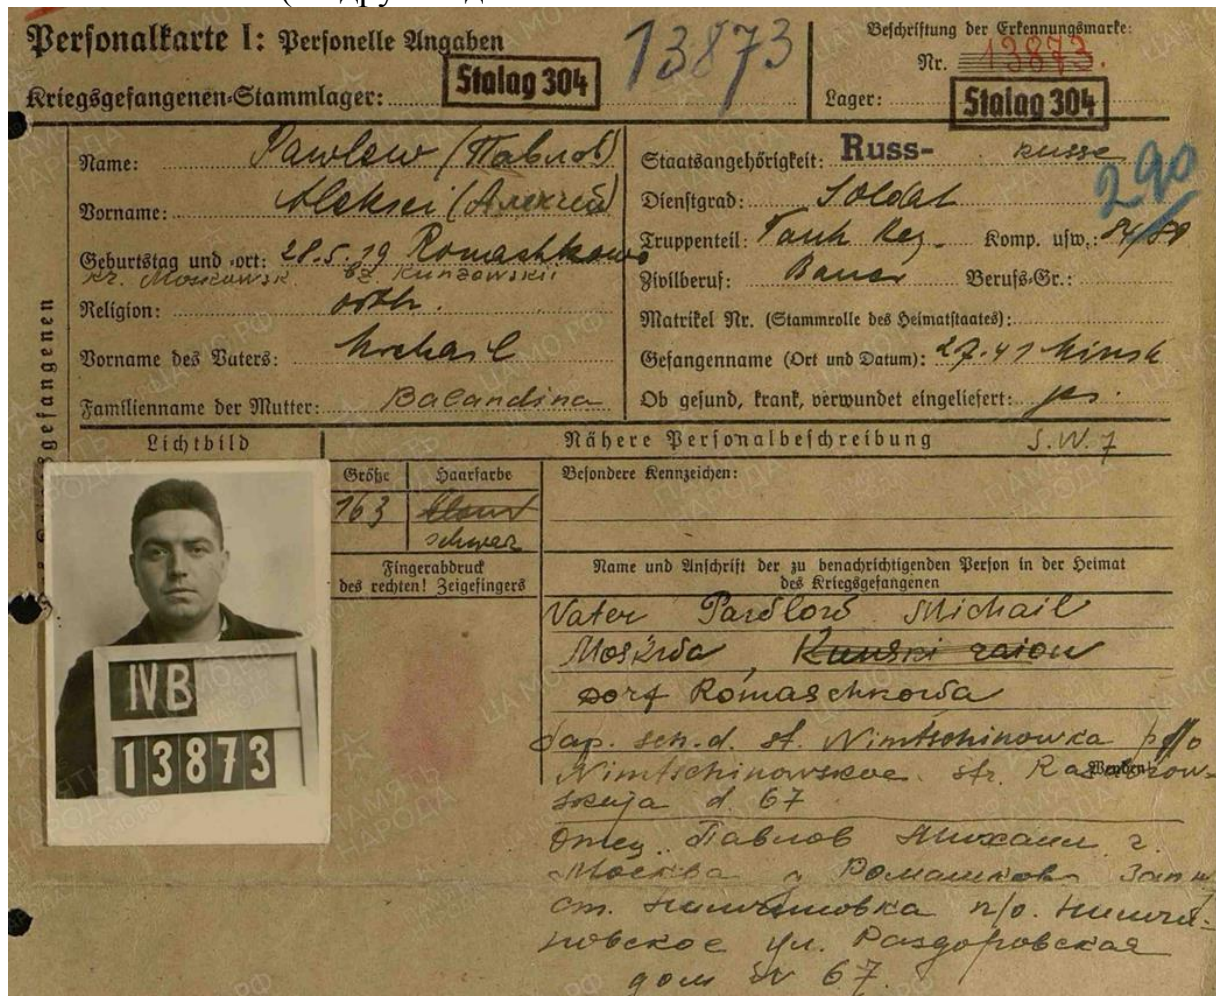 Personalkarte I: Personelle Angaben
13873
Beschriftung der Erkennungsmarke:
Nr. 13873.
Kriegsgefangenen-Stammlager: Stalag 304
Lager: Stalag 304
Name: Pawlow (Павлов)
Vorname: Aleksei (Алексей)
Geburtstag und -ort: 28.5.19 Romashkowo
Kr. Moskowsk Bz. Kunzowskii
Religion: orth.
Vorname des Vaters: Michail
Familienname der Mutter: Balandina
Staatsangehörigkeit: Russ- Russe
290
Dienstgrad: Soldat
Truppenteil: Pank Reg. Komp. usw.:
Zivilberuf: Bauer Berufs-Gr.:
Matrikel Nr. (Stammrolle des Heimatstaates):
Gefangenname (Ort und Datum): 2.7.41 Minsk
Ob gesund, krank, verwundet eingeliefert: ges.
des Kriegsgefangenen
Lichtbild
Nähere Personalbeschreibung S.W.7
Größe Haarfarbe Besondere Kennzeichen:
163 blond
schwarz
Fingerabdruck
des rechten! Zeigefingers
Name und Anschrift der zu benachrichtigenden Person in der Heimat
des Kriegsgefangenen
IVB
13873
Vater Pawlow Michail
Moskwa, Kunski raion
Dorf Romaschkowa
Sap. sch.d. st. Nimtschinowka p/o
Nimtschinowskoe str. Rasdorow-
skaja d. 67
Wenden!
Отец Павлов Михаил г.
Москва Ромашково Зап
ст. Нимчиновка п/о. Нимчи-
новское ул. Раздоровская
дом № 67.